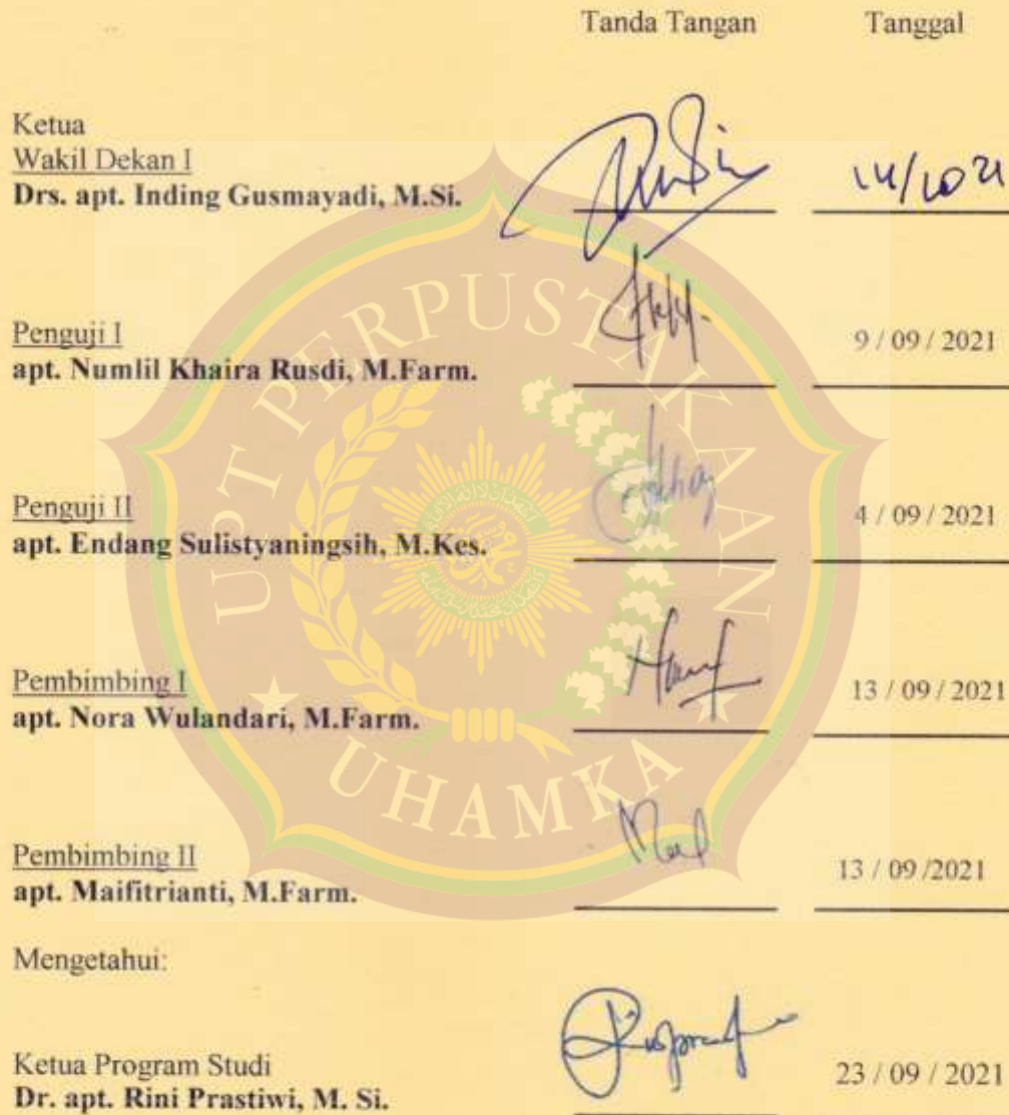 Tanda Tangan Tanggal
Ketua
Wakil Dekan I
Drs. apt. Inding Gusmayadi, M.Si.
14/10 21
Penguji I
apt. Numlil Khaira Rusdi, M.Farm.
9 / 09 / 2021
Penguji II
apt. Endang Sulistyaningsih, M.Kes.
4 / 09 / 2021
Pembimbing I
apt. Nora Wulandari, M.Farm.
13 / 09 / 2021
Pembimbing II
apt. Maifitrianti, M.Farm.
13 / 09 /2021
Mengetahui:
Ketua Program Studi
Dr. apt. Rini Prastiwi, M. Si.
23 / 09 / 2021
UPT PERPUSTAKAAN
UHAMKA